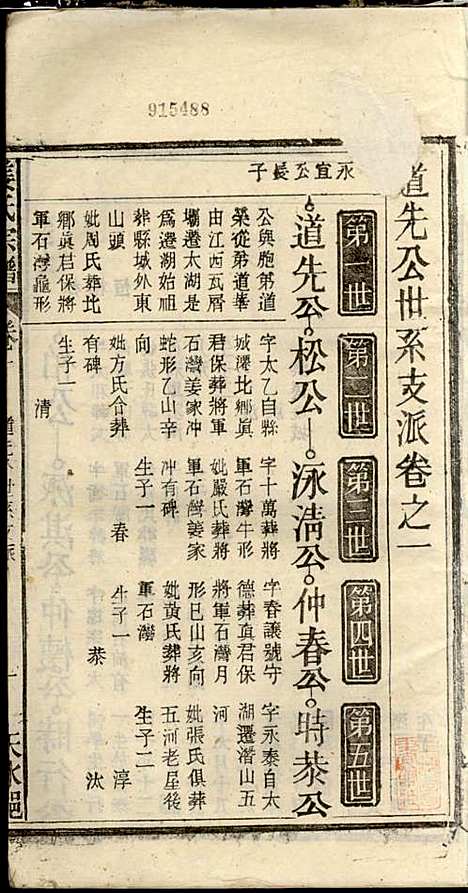 915488
道先公世系支派卷之一
第一世
第二世
第三世
第四世
第五世
永宜公長子
道先公
松公
泳清公
仲春公
時恭公
公與胞弟道
榮從弟道華
由江西瓦屑
壩遷太湖是
為遷湖始祖
葬縣城外東
山頭
妣周氏葬北
鄉真君保將
軍石灣龜形
字太乙自縣
城遷北鄉真
君保葬將軍
石灣姜家冲
蛇形乙山辛
向
妣方氏合葬
有碑
生子一
清
字十萬葬將
軍石灣牛形
妣嚴氏葬將
軍石灣姜家
冲有碑
生子一
春
字春讓號守
德葬真君保
將軍石灣月
形巳山亥向
妣黃氏葬將
軍石灣
生子一
恭
字永泰自太
湖遷潛山五
河
妣張氏俱葬
五河老屋後
生子二
淳
汰
氏宗譜
卷一
道先公世系支派
一
天水郡